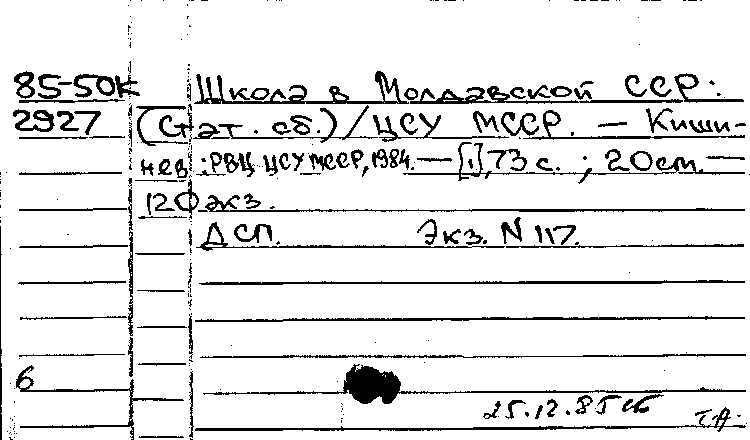 85-50к Школа в Молдавской ССР:
2927 (Стат. сб.)/ЦСУ МССР. — Киши-
нев: РВЦ ЦСУ МССР, 1984. — [1], 73 с. ; 20 см. —
120 экз.
ДСП. Экз. N 117.
6
25.12.85